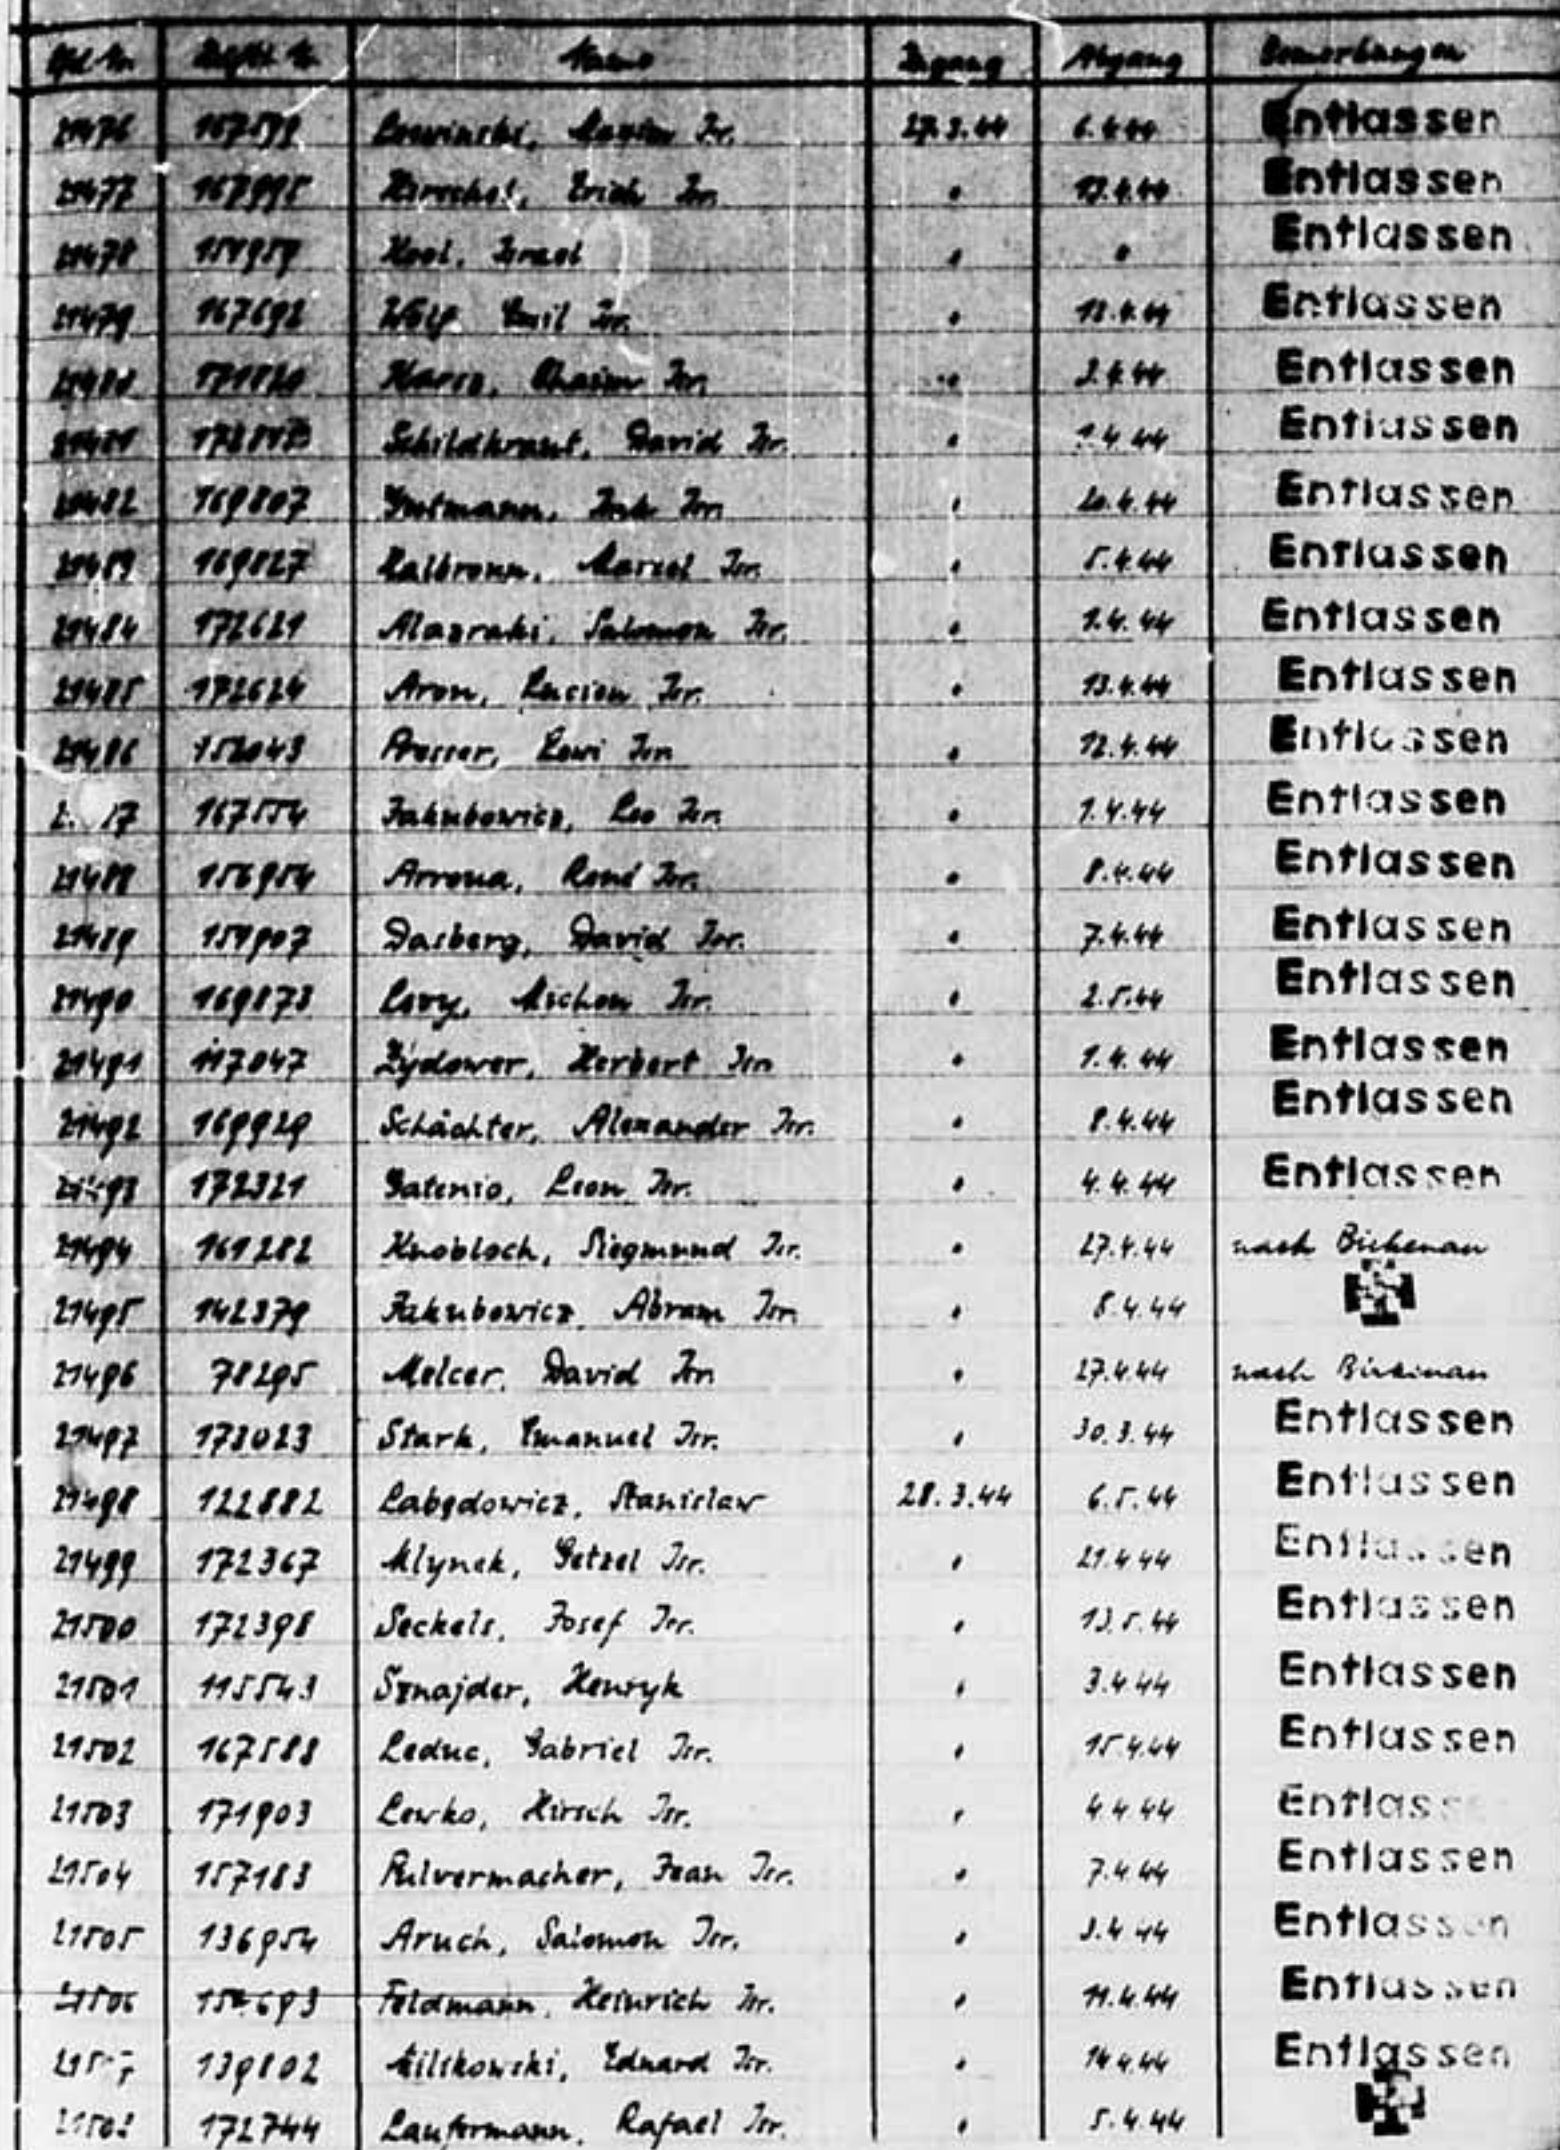 Lfd. Nr. Häftl. Nr. Name Zugang Abgang Bemerkungen
21476 167599 27.3.44 6.4.44 Entlassen
21477 167995 Erich Isr. 13.4.44 Entlassen
21478 Israel Entlassen
21479 167692 Emil Isr. Entlassen
Chaim Isr. 2.4.44 Entlassen
Schildkraut, David Isr. 1.4.44 Entlassen
21482 169807 Isr. 20.4.44 Entlassen
169827 Kalbronn, Marcel Isr. 5.4.44 Entlassen
21484 172621 Alazraki, Salomon Isr. 1.4.44 Entlassen
21485 172624 Aron, Lucien Isr. 13.4.44 Entlassen
21486 152043 Presser, Lewi Isr. 12.4.44 Entlassen
167554 Jakubowicz, Leo Isr. 1.4.44 Entlassen
21488 156954 Arrona, René Isr. 8.4.44 Entlassen
21489 151907 Dasberg, David Isr. 7.4.44 Entlassen
21490 169873 Levy, Isr. 2.5.44 Entlassen
21491 117047 Zydower, Herbert Isr. 1.4.44 Entlassen
21492 169929 Schächter, Alexander Isr. 8.4.44 Entlassen
172321 Gatenio, Leon Isr. 4.4.44 Entlassen
21494 161282 Knobloch, Siegmund Isr. 27.4.44 nach Birkenau
21495 142379 Jakubowicz, Abram Isr. 8.4.44
21496 78295 Melcer, David Isr. 27.4.44 nach Birkenau
21497 173023 Stark, Emanuel Isr. 30.3.44 Entlassen
21498 122882 Labędowicz, Stanislaw 28.3.44 6.5.44 Entlassen
21499 172367 Mlynek, Getzel Isr. 21.4.44 Entlassen
21500 172398 Seckels, Josef Isr. 13.5.44 Entlassen
21501 115543 Sznajder, Henryk 3.4.44 Entlassen
21502 167588 Leduc, Gabriel Isr. 15.4.44 Entlassen
21503 171903 Lewko, Hirsch Isr. 4.4.44 Entlassen
21504 157183 Pulvermacher, Jean Isr. 7.4.44 Entlassen
21505 136954 Aruch, Salomon Isr. 3.4.44 Entlassen
21506 Feldmann, Heinrich Isr. 11.4.44 Entlassen
139802 Milikowski, Eduard Isr. 14.4.44 Entlassen
172744 Laufermann, Rafael Isr. 5.4.44